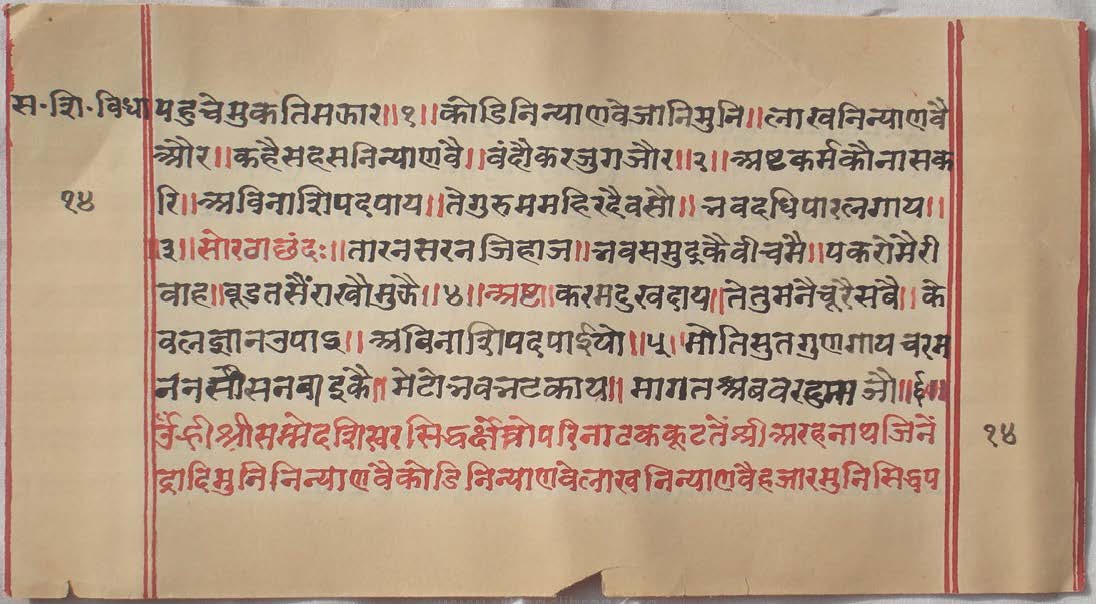 स॰शि॰विधा पहुचेमुकतिमझार॥१॥कोडिनिन्याणवेजानिमुनि॥लाखनिन्याणवै
और॥कहैसहसनिन्याणवै॥वंदौकरजुगजौर॥२॥अष्टकर्मकौनासक
१४ रि॥अविनाशिपदपाय॥तेगुरुममहिरदैवसौ॥भवदधिपारलगाय॥
३॥सोरठाछंदः॥तारनसरनजिहाज॥भवसमुद्रकैवीचमै॥पकरोमैरी
वाह॥बूडतसैंराखौमुझै॥४॥अष्टकरमदुखदाय॥तेतुमनैचूरैसबै॥के
वलज्ञानउपाइ॥अविनाशिपदपाईयो॥५॥मोतिसुतगुणगायचरम
ननसौसनबाइकै॥मेटोभवभटकाय॥मागतअबवर
ह्रीश्रीसम्मेदशिखरसिद्धक्षेत्रोपरिनाटककूटतेंश्रीअरहनाथजिनें १४
द्रादिमुनिनिन्याणवैकोडिनिन्याणवेलाखनिन्याणवैहजारमुनिसिद्धप